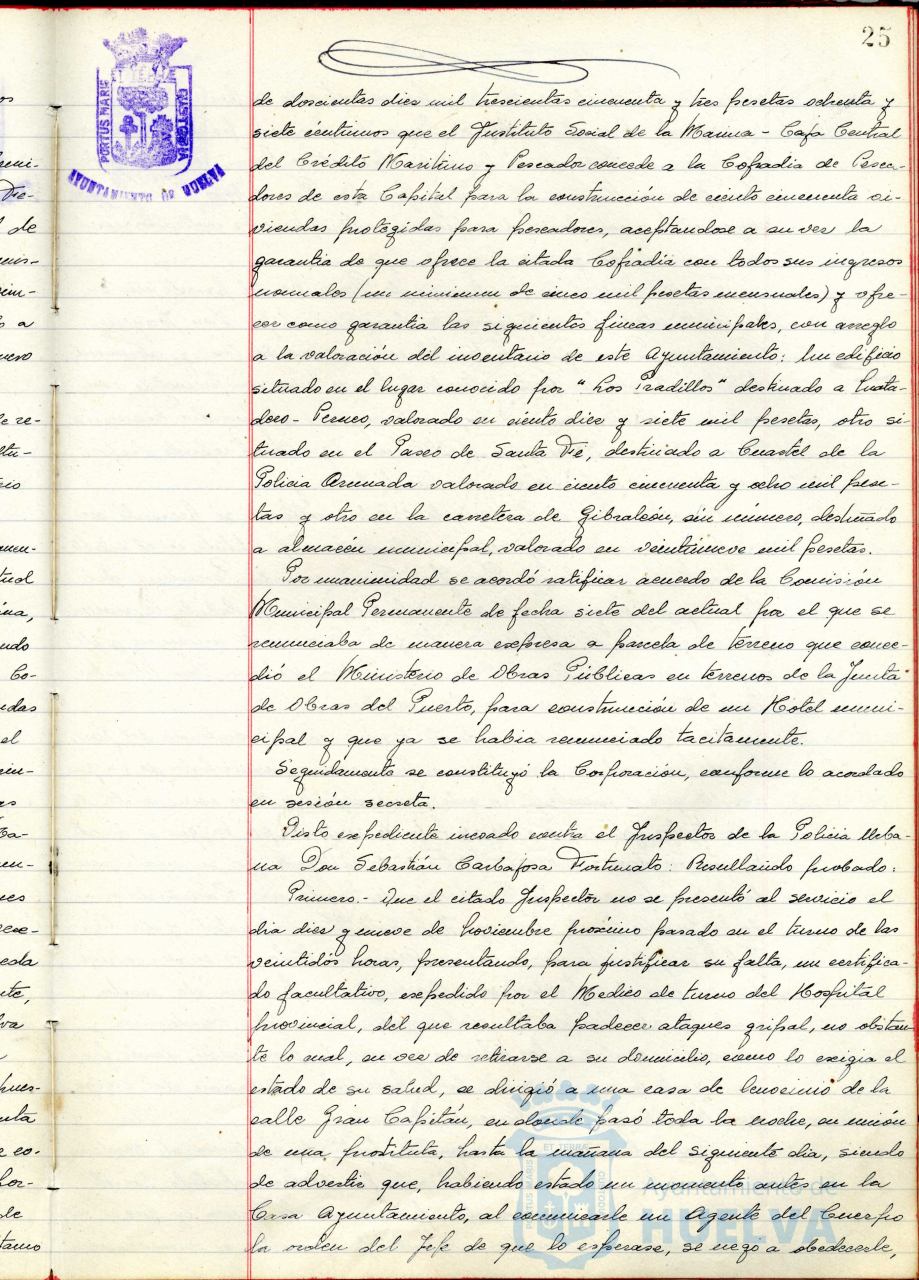 25
PORTUS MARIS ET TERRAE CUSTODIA
AYUNTAMIENTO DE HUELVA
de doscientas diez mil trescientas cincuenta y tres pesetas ochenta y
siete céntimos que el Instituto Social de la Marina - Caja Central
del Crédito Maritimo y Pescador concede a la Cofradia de Pesca-
dores de esta Capital para la construcción de ciento cincuenta vi-
viendas protegidas para pescadores, aceptandose a su vez la
garantia de que ofrece la citada Cofradia con todos sus ingresos
normales (un minimum de cinco mil pesetas mensuales) y ofre-
cer como garantia las siguientes fincas municipales, con arreglo
a la valoración del inventario de este Ayuntamiento: Un edificio
situado en el lugar conocido por "Los Pradillos" destinado a Mata-
dero - Porcino, valorado en ciento diez y siete mil pesetas, otro si-
tuado en el Paseo de Santa Fé, destinado a Cuartel de la
Policia Armada valorado en ciento cincuenta y ocho mil pese-
tas y otro en la carretera de Gibraleón, sin número, destinado
a almacén municipal, valorado en veintinueve mil pesetas.
Por unanimidad se acordó ratificar acuerdo de la Comisión
Municipal Permanente de fecha siete del actual por el que se
renunciaba de manera expresa a parcela de terreno que conce-
dió el Ministerio de Obras Públicas en terrenos de la Junta
de Obras del Puerto, para construcción de un Hotel muni-
cipal y que ya se habia renunciado tacitamente.
Seguidamente se constituyó la Corporación, conforme lo acordado
en sesión secreta.
Visto expediente incoado contra el Inspector de la Policia Urba-
na Don Sebastián Carbajosa Fortunato: Resultando probado:
Primero.- Que el citado Inspector no se presentó al servicio el
dia diez y nueve de Noviembre próximo pasado en el turno de las
veintidós horas, presentando, para justificar su falta, un certifica-
do facultativo, expedido por el Medico de turno del Hospital
provincial, del que resultaba padecer ataques gripal, no obstan-
te lo cual, en vez de retirarse a su domicilio, como lo exigia el
estado de su salud, se dirigió a una casa de lenocinio de la
calle Gran Capitán, en donde pasó toda la noche, en unión
de una prostituta, hasta la mañana del siguiente dia, siendo
de advertir que, habiendo estado un momento antes en la
Casa Ayuntamiento, al comunicarle un Agente del Cuerpo
la orden del Jefe de que lo esperase, se negó a obedecerle,
Ayuntamiento de
HUELVA